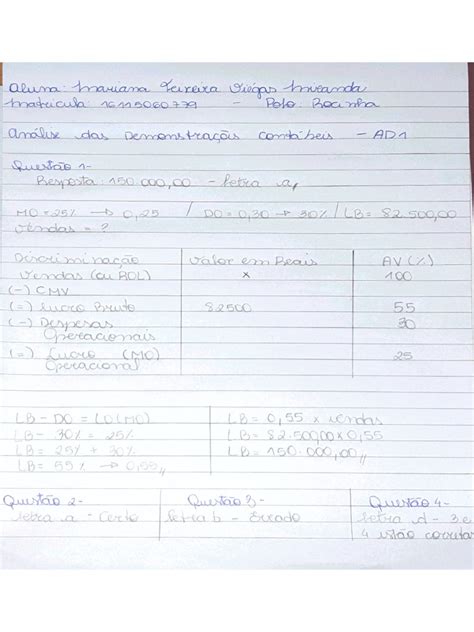 Aluna: Mariana Teixeira Viegas Miranda
Matrícula: 16115060779 - Polo: Rocinha
Análise das Demonstrações contábeis - AD1
Questão 1-
Resposta: 150.000,00 - letra a,,
MO = 25% → 0,25 / DO = 0,30 → 30% / LB = 82.500,00
Vendas = ?
Discriminação Valor em Reais AV (%)
Vendas (ou ROL) x 100
(-) CMV
(=) Lucro Bruto 82500 55
(-) Despesas 30
Operacionais
(=) Lucro (MO) 25
Operacional
LB - DO = LO (MO) LB = 0,55 x vendas
LB - 30% = 25% LB = 82.500,00 x 0,55
LB = 25% + 30% LB = 150.000,00,,
LB = 55% → 0,55,,
Questão 2- Questão 3- Questão 4-
letra a - Certo letra b - Errado letra d - 3 e
4 estão corretas